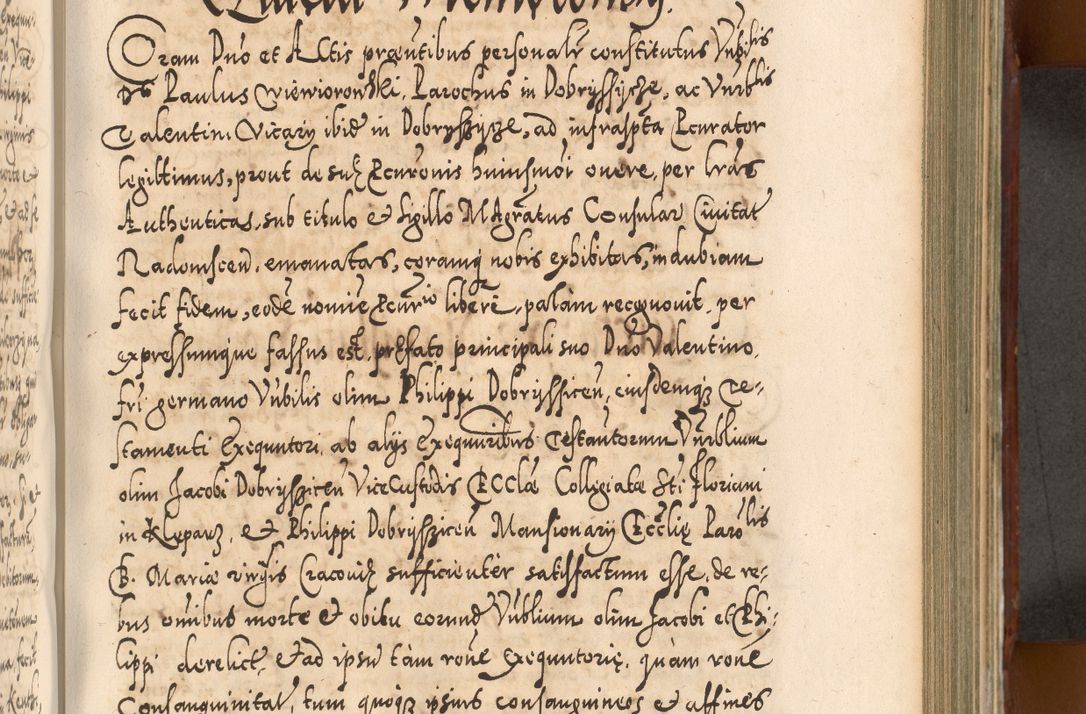 Coram Dno et Actis prntibus personalr constitutus Vnblis
Ds Paulus Wiewiorowski, Parochus in Dobryssyche, ac Vnrblis
Valentini Vicary ibid in Dobryszyze, ad infraspta Pcurator
legittimus, prout de suis Pcuronis huiusmoi onere, per lras
Authenticas, sub titulo et sigillo MAgratus Consular Ciuitat
Radomscen, emanatas, coramq nobis exhibitas, indubiam
fecit fidem, eode nomie Pcurio libere, palam recognouit, per
expressumque fassus est, prefato principali suo Dno Valentino,
fri germano Vnbilis olim Philippi Dobryssicen, eiusdemq Te-
stamenti Exequutori, ab alys Exequutibus Testantorum Vnrblium
olim Jacobi Dobryszicen ViceCustodis ECCLæ Collegiatæ Sti Floriani
in Kleparz, et Philippi Dobryszicen Mansionary Ecclię Parolis
B. Mariæ virgis Cracouis sufficienter satisfactum esse, de re-
bus omibus morte et obitu eorund Vnblium olim Jacobi et Phi-
lippi derelict, et ad ipsu tàm rone exequutorię, quàm rone
Consanguinitat, tum quoq ipsius consanguineos et affines